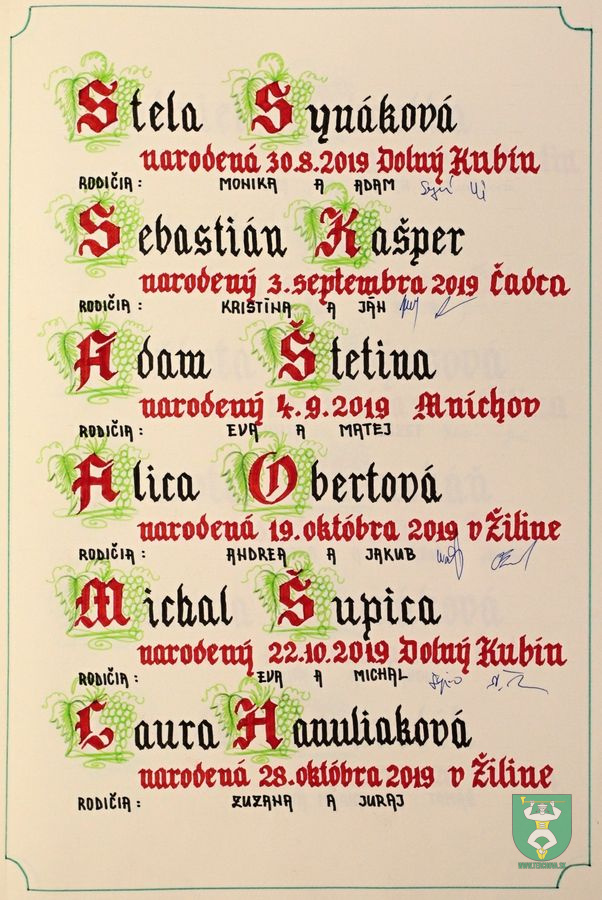 Stela Synáková
narodená 30.8.2019 Dolný Kubín
RODIČIA: MONIKA A ADAM
Sebastián Kašper
narodený 3. septembra 2019 Čadca
RODIČIA: KRISTÍNA A JÁN
Adam Štetina
narodený 4.9.2019 Mníchov
RODIČIA: EVA A MATEJ
Alica Obertová
narodená 19. októbra 2019 v Žiline
RODIČIA: ANDREA A JAKUB
Michal Šupica
narodený 22.10.2019 Dolný Kubín
RODIČIA: EVA A MICHAL
Laura Hanuliaková
narodená 28. októbra 2019 v Žiline
RODIČIA: ZUZANA A JURAJ
WWW.TERCHOVA.SK